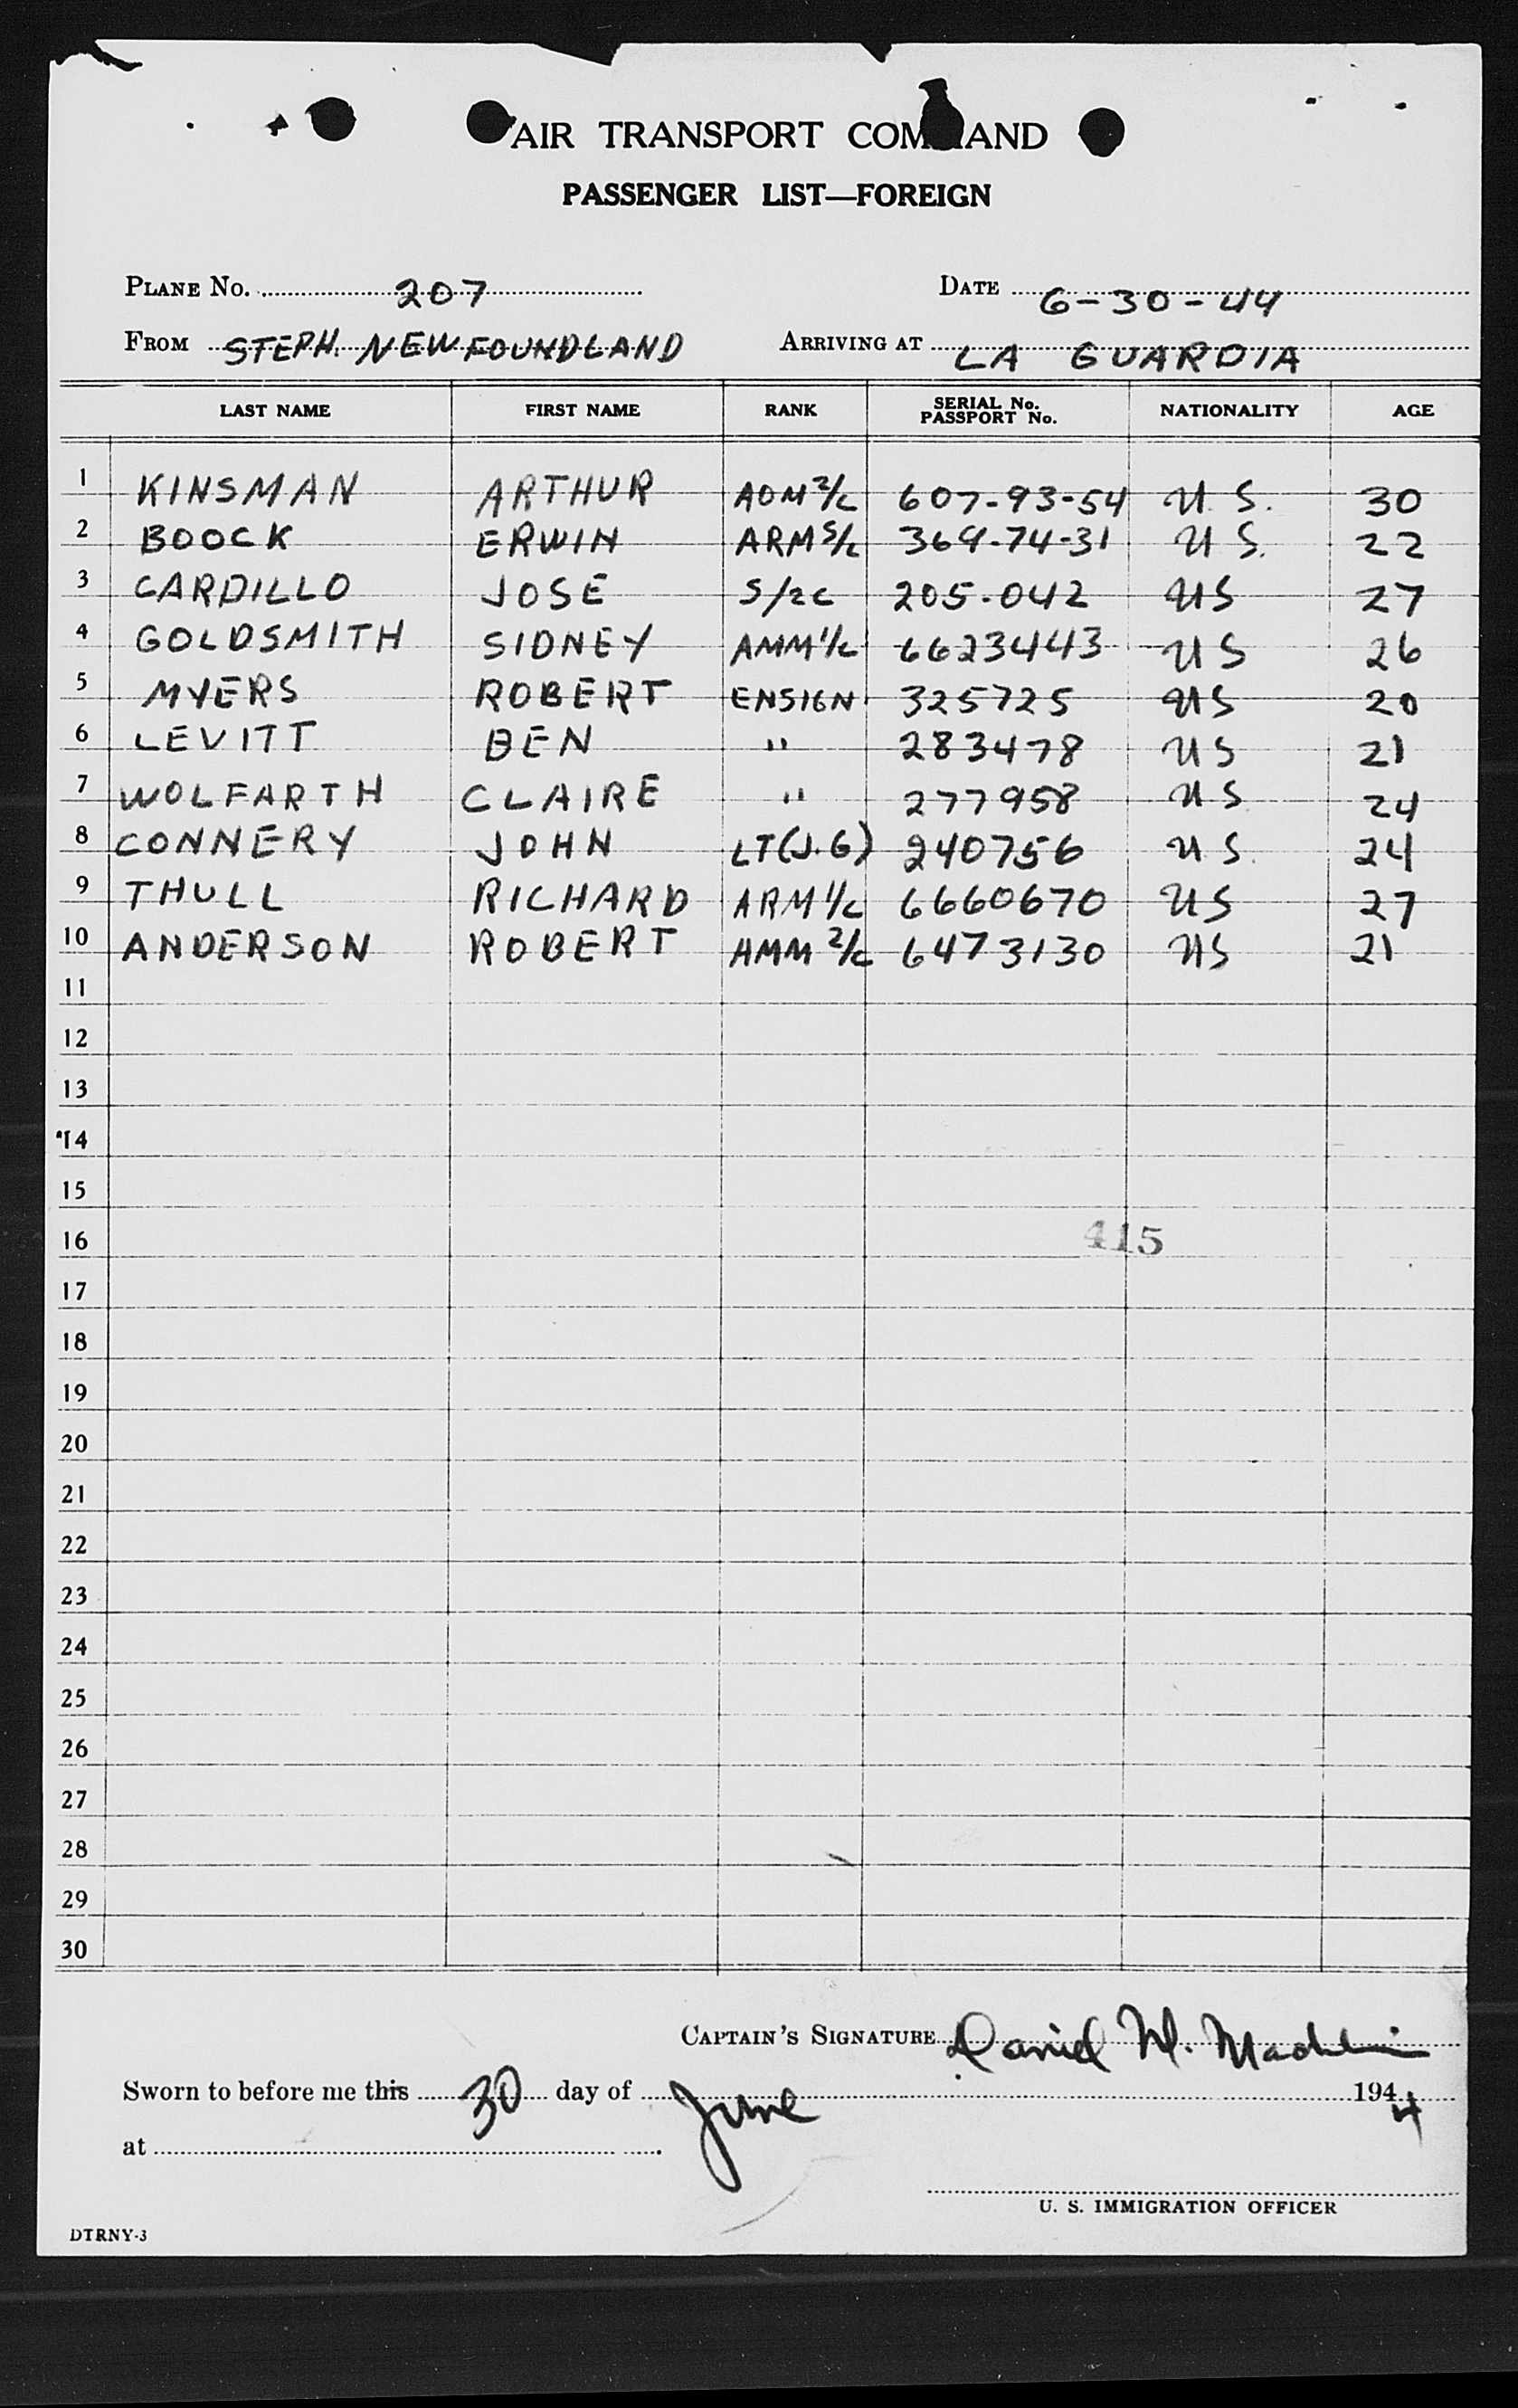 AIR TRANSPORT COMMAND
PASSENGER LIST—FOREIGN
PLANE No. 207 DATE 6-30-44
FROM STEPH. NEWFOUNDLAND ARRIVING AT LA GUARDIA
LAST NAME FIRST NAME RANK SERIAL No. PASSPORT No. NATIONALITY AGE
1 KINSMAN ARTHUR AOM 2/c 607-93-54 U.S. 30
2 BOOCK ERWIN ARM 369-74-31 U S. 22
3 CARDILLO JOSE S/2c 205-042 US 27
4 GOLDSMITH SIDNEY AMM 1/c 6623443 US 26
5 MYERS ROBERT ENSIGN 325725 US 20
6 LEVITT BEN " 283478 US 21
7 WOLFARTH CLAIRE " 277958 US 24
8 CONNERY JOHN LT(J.G) 240756 U S. 24
9 THULL RICHARD ARM 1/c 6660670 US 27
10 ANDERSON ROBERT AMM 2/c 6473130 US 21
11
12
13
14
15
16 415
17
18
19
20
21
22
23
24
25
26
27
28
29
30
CAPTAIN'S SIGNATURE Daniel
Sworn to before me this 30 day of June 1944
at
U. S. IMMIGRATION OFFICER
DTRNY-3